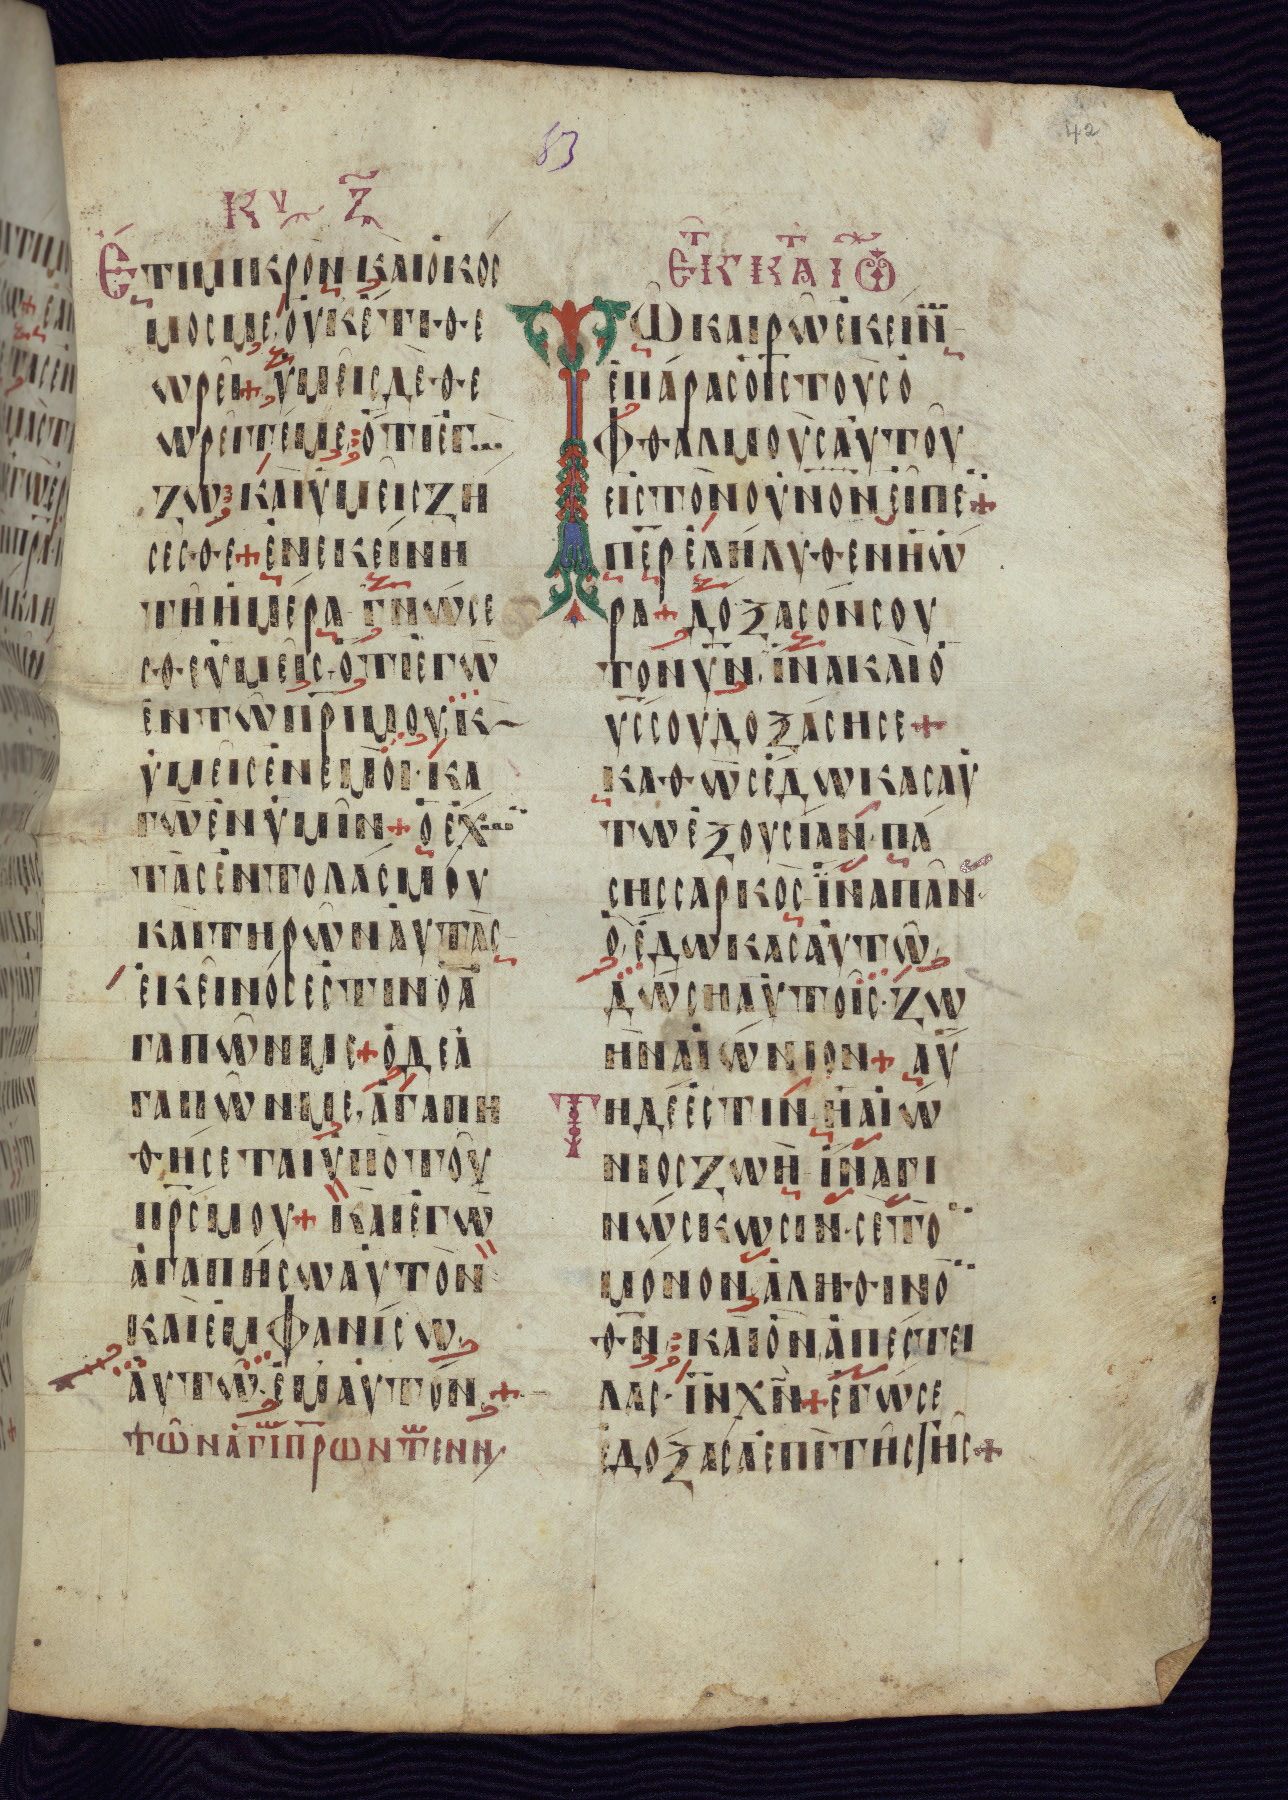 83
42
ΚΥ Ζ
ἜΤΙ ΜΙΚΡῸΝ ΚΑΙ Ὁ ΚΌΣ
ΜΟΣ ΜΕ ΟΥΚΈΤΙ ΘΕ
ΩΡΕῖ + ΥΜΕΙΣ ΔΕ ΘΕ
ΩΡΕΙΤΕ ΜΕ· ὍΤΙ ἘΓ
ΖΩ· ΚΑῚ ΥΜΕΙΣ ΖΗ
ΣΕΣΘΕ + ἘΝ ΕΚΕΊΝΗ
ΤΗ ἩΜΕΡΑ ΓΝΩΣΕ
ΣΘΕ ΥΜΕΙΣ· ὍΤΙ ἘΓΩ
ἘΝ ΤΩ ΠΡΙ ΜΟΥ, Κ
ΥΜΕΙΣ ἘΝ ΕΜΟΙ· ΚΑ
ΓΩ ἘΝ ΥΜΙΝ + Ὁ ἜΧ
ΤΑΣ ἘΝΤΟΛΆΣ ΜΟΥ
ΚΑῚ ΤΗΡΩΝ ΑΥΤΑΣ
ἘΚΕΙΝΌΣ ἘΣΤΙΝ Ὁ Ἀ
ΓΑΠΩΝ ΜΕ + Ὁ ΔΕ Ἀ
ΓΑΠΩΝ ΜΕ, ἈΓΑΠΗ
ΘΉΣΕΤΑΙ ΥΠῸ ΤΟΥ
ΠΡΣ ΜΟΥ + ΚΑῚ ἘΓΩ
ἈΓΑΠΉΣΩ ΑΥΤῸΝ
ΚΑῚ ἘΜΦΑΝΊΣΩ
ΑΥΤΩ ἘΜΑΥΤΌΝ +
ΤΩΝ ἉΓΙ ΠΡΩΝ Τ ΕΝ Ν
ἘΚ Τ ΚΑΤ ΙΩ
ΤΩ ΚΑΙΡΩ ἘΚΕΙΝ
ἘΠΆΡΑΣ Ὁ ΙΣ ΤΟΥΣ Ὀ
ΦΘΑΛΜΟΥΣ ΑΥΤΟΥ
ΕΙΣ ΤῸΝ ΟΥΝΟΝ ΕΙΠΕ +
ΠΕΡ ἘΛΉΛΥΘΕΝ Ἡ Ὥ
ΡΑ + ΔΌΞΑΣΟΝ ΣΟΥ
ΤΟΝ ΥΝ, ΙΝΑ ΚΑΙ Ὁ
ΥΣ ΣΟΥ ΔΟΞΆΣΗ ΣΕ +
ΚΑΘΩΣ ἜΔΩΚΑΣ ΑΥ
ΤΩ ἘΞΟΥΣΊΑΝ ΠΆ
ΣΗΣ ΣΑΡΚῸΣ ΙΝΑ ΠΑΝ
Ὁ ἜΔΩΚΑΣ ΑΥΤΩ,
ΔΩΣΗ ΑΥΤΟΙΣ ΖΩ
ΗΝ ΑΙΩΝΙΟΝ + ΑΥ
ΤΗ ΔΕ ἘΣΤΙΝ Ἡ ΑΙΩ
ΝΙΟΣ ΖΩῊ ΙΝΑ ΓΙ
ΝΩΣΚΩΣΙΝ ΣΕ ΤΟ
ΜΌΝΟΝ ἈΛΗΘΙΝΟ
ΘΝ, ΚΑῚ ὉΝ ἈΠΕΣΤΕΙ
ΛΑΣ ΙΝ ΧΝ + ἘΓΩ ΣΕ
ἘΔΌΞΑΣΑ ἘΠῚ ΤΗΣ ΓΗΣ +